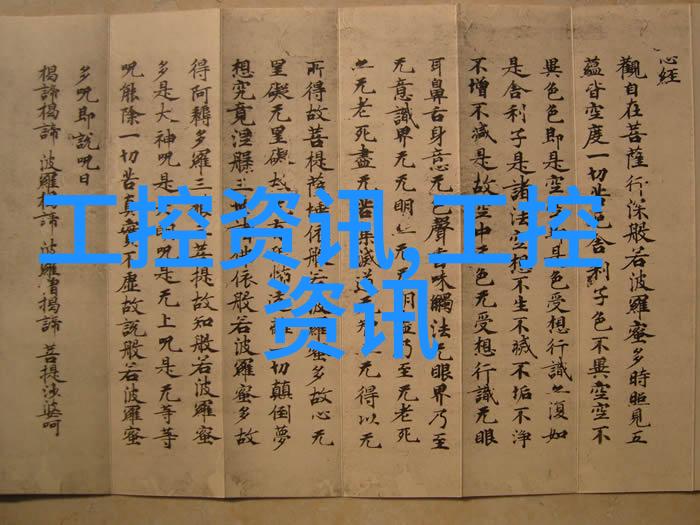 心经
觀自在菩薩行深般若波羅蜜多時照見五
蘊皆空度一切苦厄舍利子色不異空空不
異色色即是空空即是色受想行識亦復如
是舍利子是諸法空想不生不滅不垢不淨
不增不減是故空中无色无受想行識无眼
耳鼻舌身意无色聲香味觸法无眼界乃至
无意識界无无明亦无无明盡乃至无老死
亦无老死盡无苦集滅道无智亦无得以无
所得故菩提薩埵依般若波羅蜜多故心无
罣礙无罣礙故一切顛倒夢
想究竟涅槃三世諸佛依般若波羅蜜多故
得阿耨多羅三菩提故知般若波羅蜜
多是大神呪是大明呪是无上呪是无等等
呪能除一切苦真實不虛故說般若波羅蜜
多呪即說呪曰
揭諦揭諦 波羅揭諦 波羅僧揭諦 菩提婆呵
工控资讯,工控
资讯